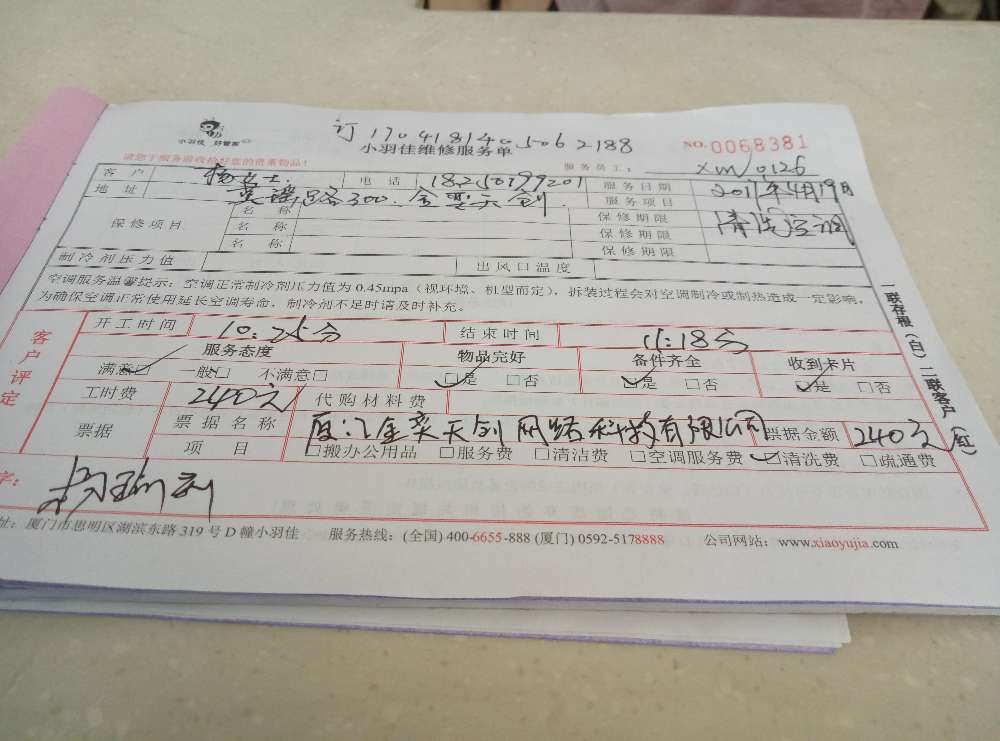 小羽佳 好管家
订1704181405062188
小羽佳维修服务单
NO.0068381
请您于服务前收检好您的贵重物品!
服务员工: xm/0126
客户 杨女士 电话 18250199201 服务日期 2017年4月19日
地址 路300. 金奕天剑. 服务项目 清洗空调
保修项目 名称 保修期限
名称 保修期限
名称 保修期限
制冷剂压力值 出风口温度
空调服务温馨提示:空调正常制冷剂压力值为0.45mpa(视环境、机型而定),拆装过程会对空调制冷或制热造成一定影响,
为确保空调正常使用延长空调寿命,制冷剂不足时请及时补充。
客户评定
开工时间 10:25分 结束时间 11:18分
服务态度 物品完好 备件齐全 收到卡片
满意□ 一般□ 不满意□ □是 □否 □是 □否 □是 □否
工时费 240元 代购材料费
票据 票据名称 厦门金奕天剑网络科技有限公司 票据金额 240元
项目 □搬办公用品 □服务费 □清洁费 □空调服务费 □清洗费 □疏通费
字:
址:厦门市思明区湖滨东路319号D幢小羽佳 服务热线:(全国)400-6655-888(厦门)0592-5178888 公司网站:www.xiaoyujia.com
一联存根(白) 二联客户(红)